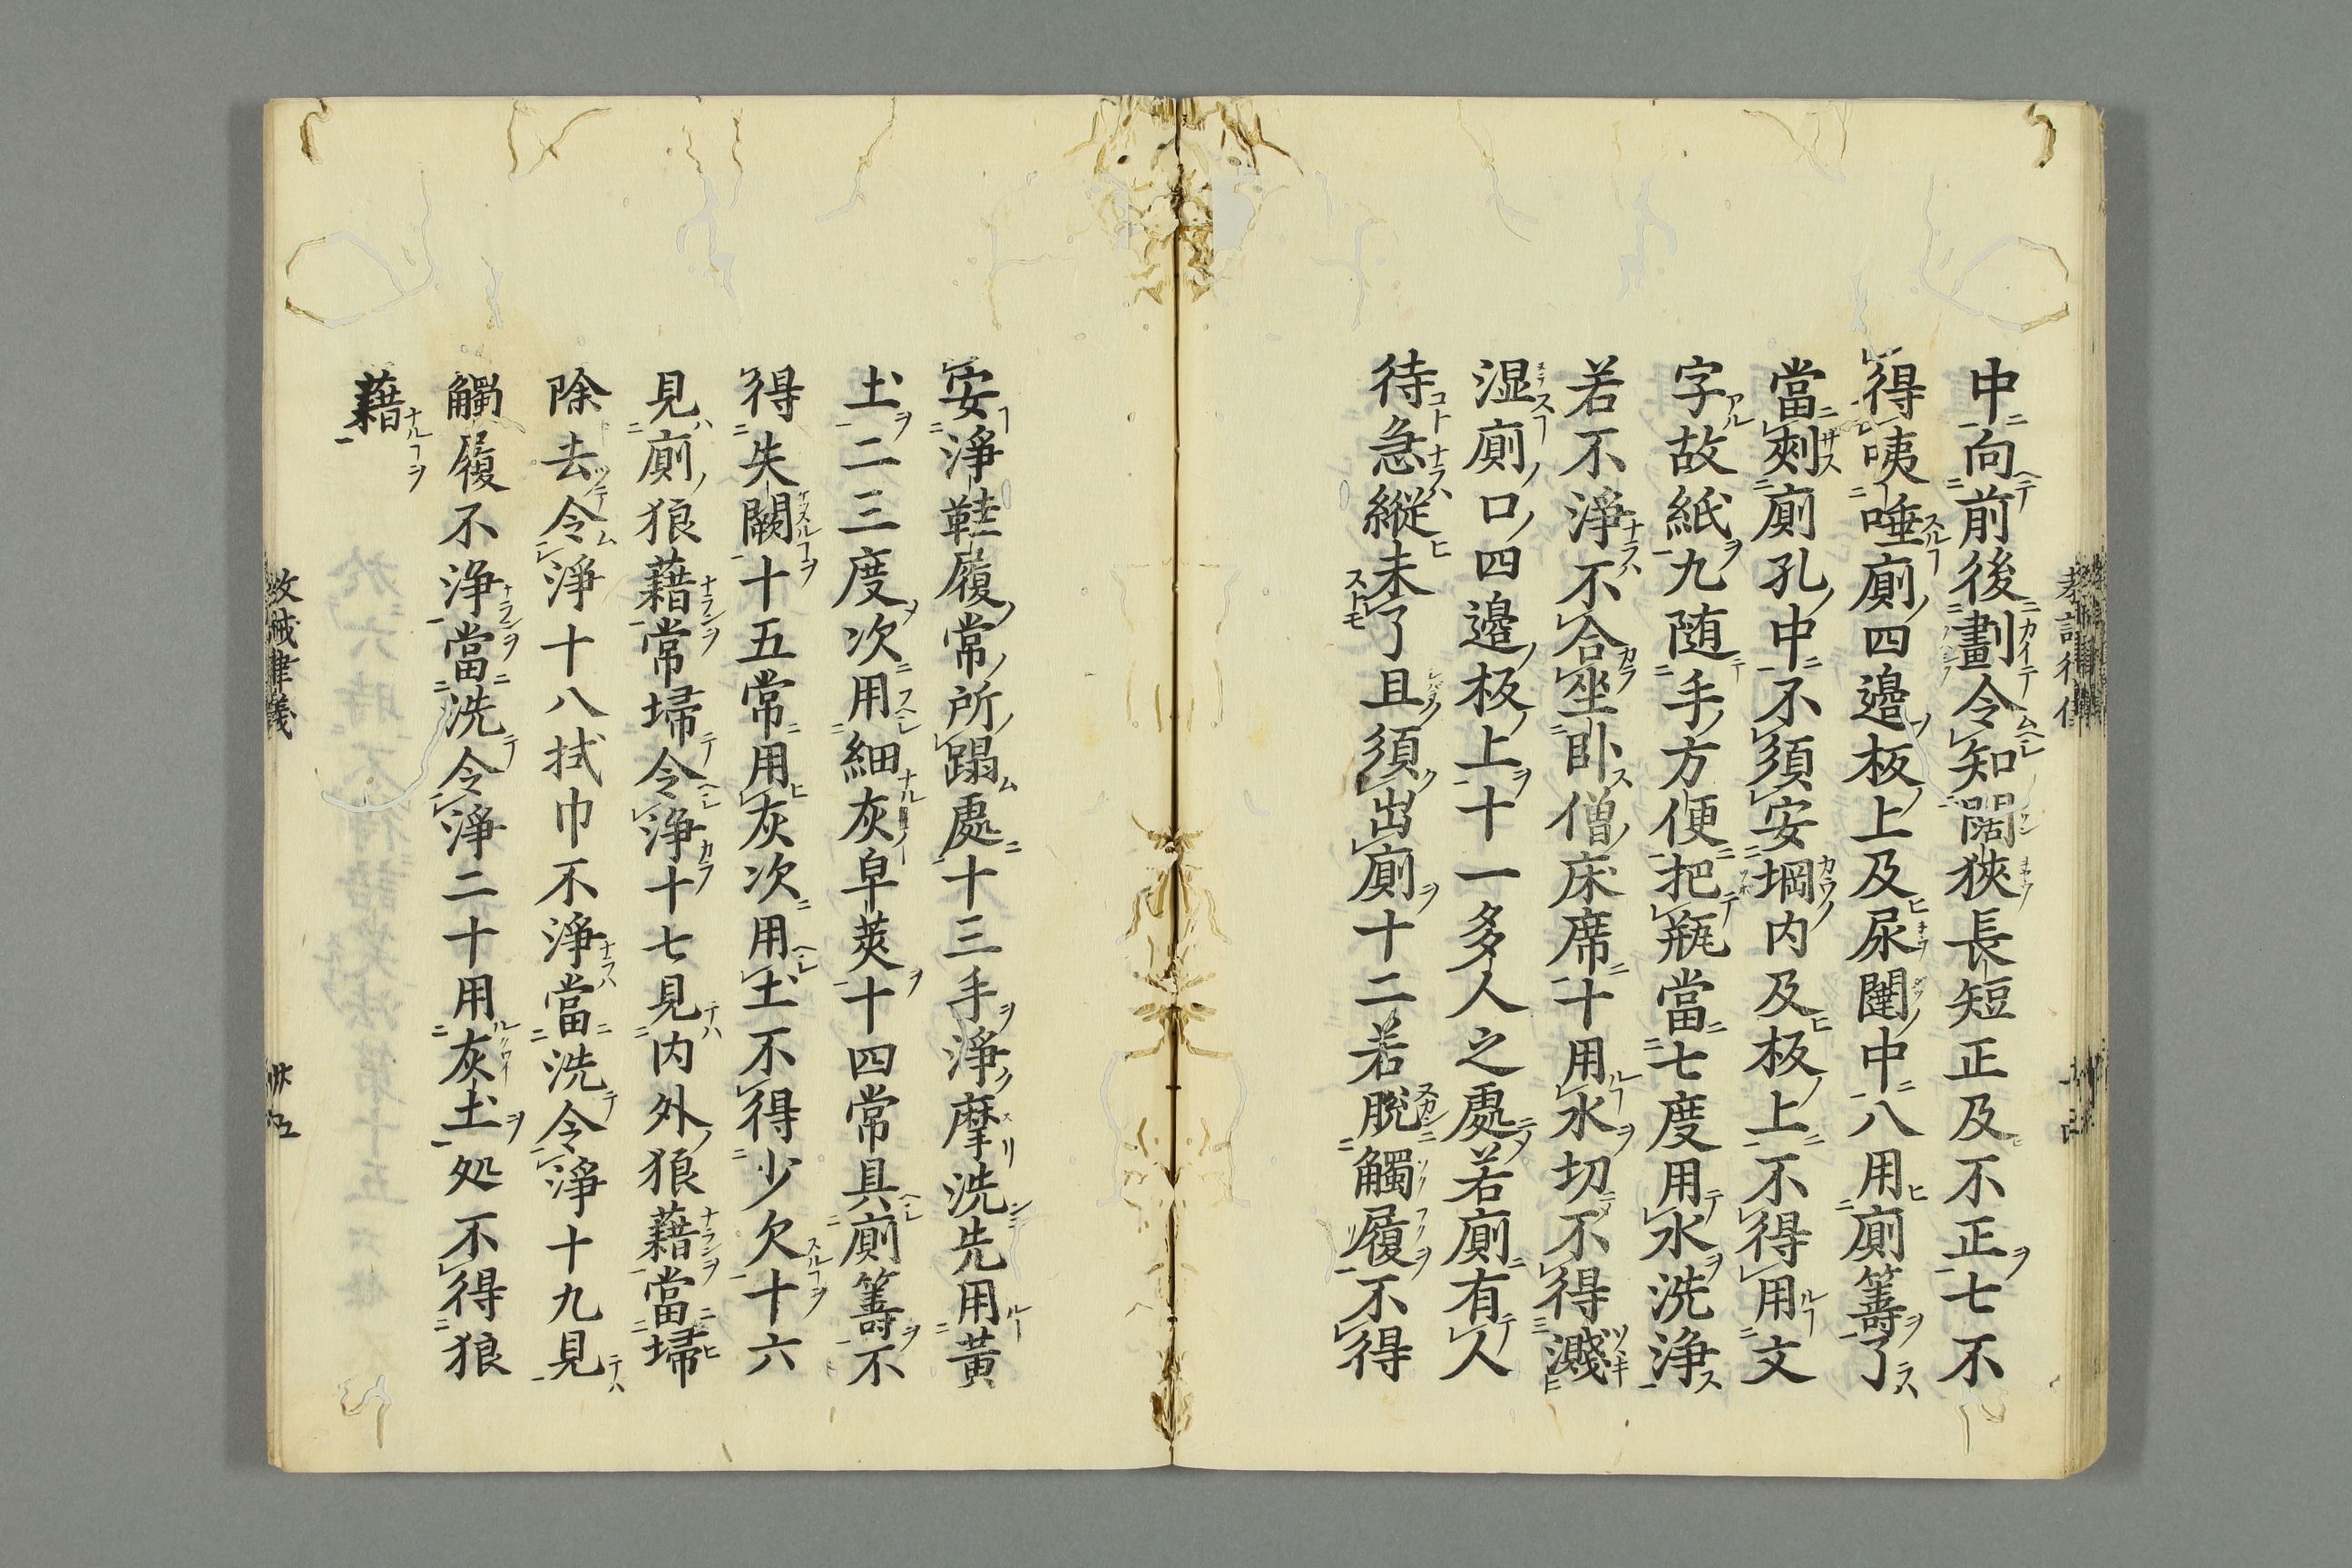 中向前後劃令知闊狹長短正及不正七不
得咦唾廁四邊板上及尿闥中八用廁籌了
當刺廁孔中不須安堈内及板上不得用文
字故紙九随手方便把瓶當七度用水洗浄
若不淨不合坐卧僧床席十用水切不得濺
湿廁口四邊板上十一多人之處若廁有人
待急縦未了且須出廁十二若脫觸履不得
安淨鞋履常所蹋處十三手淨摩洗先用黃
土二三度次用細灰皁莢十四常具廁籌不
得失闕十五常用灰次用土不得少欠十六
見廁狼藉常埽令淨十七見内外狼藉當埽
除去令淨十八拭巾不淨當洗令淨十九見
觸履不淨當洗令淨二十用灰土処不得狼
藉